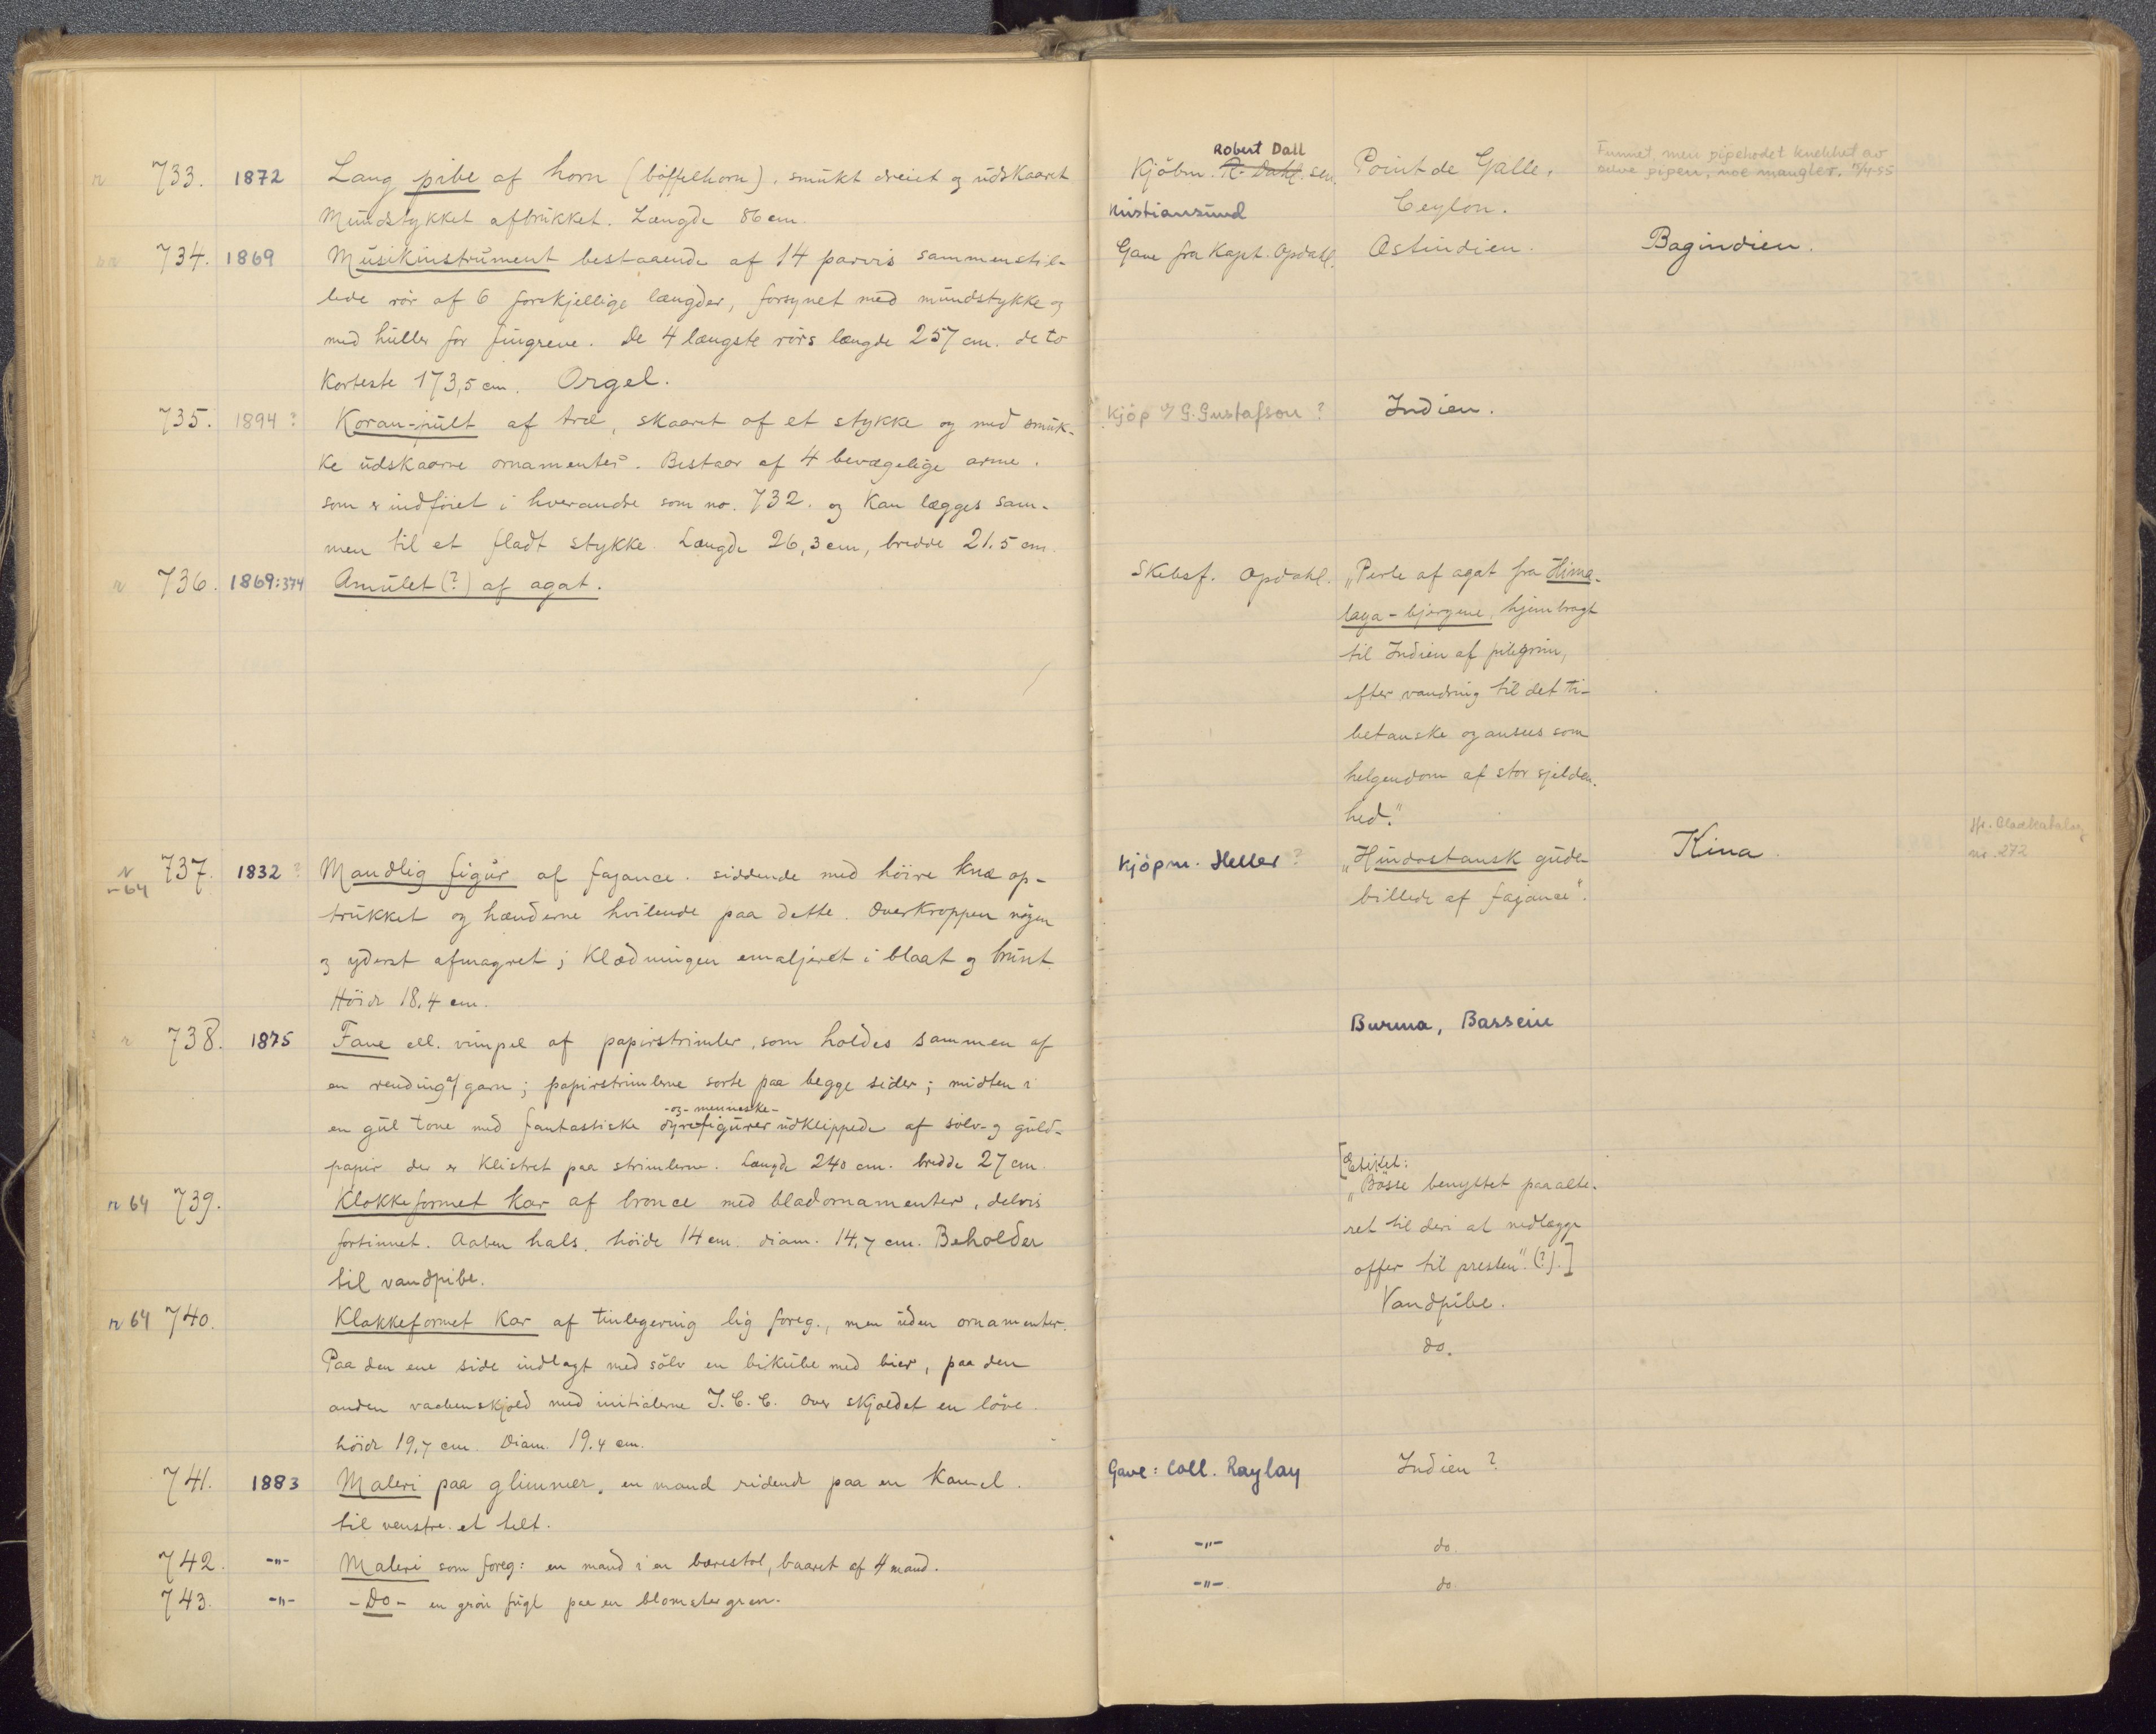 r 733. 1872 Lang pibe af horn (böffelhorn), smukt dreiet og udskaaret
Mundstykket afbrukket. Længde 86 cm.
Robert Dall
Kjöbm. R. Dahl. sen.
Kristiansund
Point de Galle,
Ceylon.
Funnet, men pipehodet knekket av
selve pipen, noe mangler. 15/4-55
734. 1869 Musikinstrument bestaaende af 14 parvis sammenstil-
lede rör af 6 forskjellige længder, forsynet med mundstykke og
med huller for fingrene. De 4 længste rörs længde 257 cm. de to
korteste 173,5 cm. Orgel.
Gave fra Kapt. Opdahl.
Ostindien.
Bagindien.
735. 1894? Koran-pult af træ, skaaret af et stykke og med smuk-
ke udskaarne ornamenter. Bestaar af 4 bevægelige arme.
som er indföiet i hverandre som no. 732. og kan lægges sam-
men til et fladt stykke. Længde 26,3 cm, bredde 21.5 cm.
Kjöp v/ G. Gustafson?
Indien.
r 736. 1869:374 Amulet (?) af agat.
Skebsf. Opdahl.
„Perle af agat fra Hima-
laya-bjergene, hjembragt
til Indien af pilegrim,
efter vandring til det ti-
betanske og ansees som
helgendom af stor sjelden-
hed."
r -64 737. 1832? Mandlig figur af fajance. siddende med höire knæ op-
trukket og hænderne hvilende paa dette. Overkroppen nögen
og yderst afmagret; Klædningen emaljeret i blaat og brunt.
Höide 18.4 cm.
Kjöpm. Heller?
„Hindostansk gude-
billede af fajance".
Kina.
no. 272
r 738. 1875 Fane ell. vimpel af papirstrimler, som holdes sammen af
en rending af garn; papirstrimlerne sorte paa begge sider; midten i
en gul tone med fantastiske dyre -og- menneske- figurer udklippede af sölv- og guld-
papir der er klistret paa strimlerne. Længde 240 cm. bredde 27 cm.
Burma, Bassein
r 64 739. Klokkeformet kar af bronce med bladornamenter, delvis
fortinnet. Aaben hals. höide 14 cm. diam. 14,7 cm. Beholder
til vandpibe.
[Etiket:
„Bösse benyttet paa alte-
ret til deri at nedlægge
offer til presten" (?).]
Vandpibe.
r 64 740. Klokkeformet kar af tinlegering lig foreg., men uden ornamenter.
Paa den ene side indlagt med sölv en bikube med bier, paa den
anden vaabenskjold med initialerne J. C. C. over skjoldet en löve.
höide 19,7 cm. Diam. 19.4 cm.
do.
741. 1883 Maleri paa glimmer, en mand ridende paa en kamel.
til venstre et telt.
Gave: Coll. Raylay
Indien?
742. -"- Maleri som foreg: en mand i en bærestol, baaret af 4 mænd.
-"- do.
743. -"- -Do- en grön fugl paa en blomstergren.
-"- do.